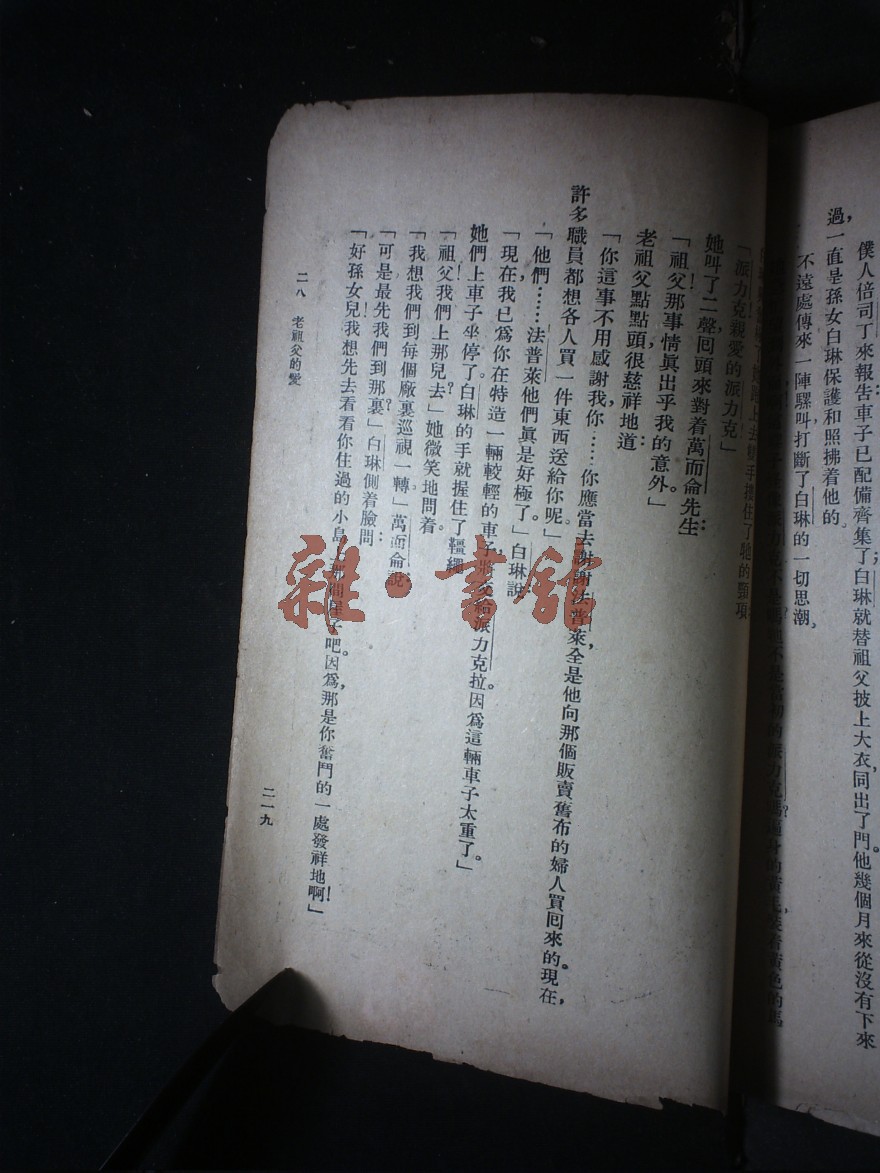 僕人倍司了來報告車子已配備齊集了；白琳就替祖父披上大衣，同出了門。他幾個月來從沒有下來
過，一直是孫女白琳保護和照拂着他的。
不遠處傳來一陣騾叫打斷了白琳的一切思潮，
手摟住了牠的頸項：
「派力克！親愛的派力克」
她叫了二聲，囘頭來對着萬而侖先生：
「祖父！那事情眞出乎我的意外。」
老祖父點點頭，很慈祥地道：
「你這事不用感謝我，你……你應當去謝謝法普萊，全是他向那個販賣舊布的婦人買囘來的。現在，
許多職員都想各人買一件東西送給你呢。」
「他們……法普萊他們眞是好極了」白琳說：
「現在我已爲你在特造一輛較輕的車子，將交給派力克拉，因爲這輛車子太重了。」
她們上車子坐停了。白琳的手就握住了韁繩，
「祖父！我們上那兒去？」她微笑地問着。
「我想我們到每個廠裏巡視一轉」萬而侖說：
「可是最先我們到那裏？」白琳側着臉問：
「好孫女兒！我想先去看看你住過的小島上那間屋子吧。因爲，那是你奮鬥的一處發祥地啊！」
二八　老祖父的愛
二一九
雜·書館